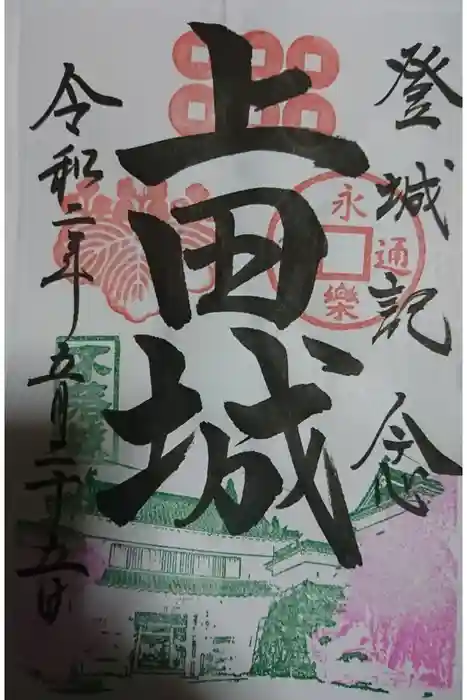 登城記念
上田城
令和二年五月二十五日
永
通
樂